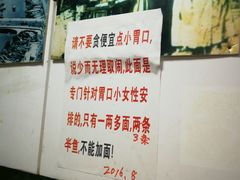 请不要贪便宜点小胃口,
说少而无理取闹,此面是
专门针对胃口小女性安
排的,只有一两多面,两条
3条
半鱼,不能加面!
2016.8